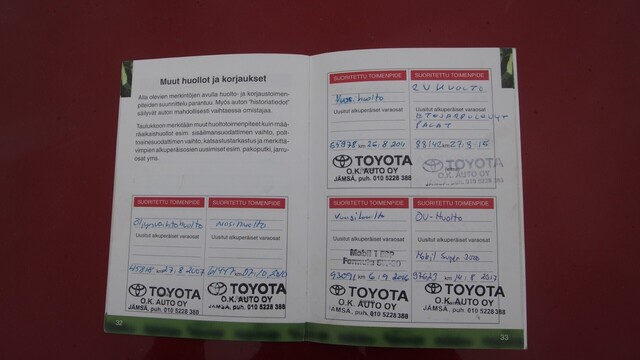 Muut huollot ja korjaukset
Alla olevien merkintöjen avulla huolto- ja korjaustoimen-
piteiden suunnittelu parantuu. Myös auton "historiatiedot"
säilyvät auton mahdollisesti vaihtaessa omistajaa.
Taulukkoon merkitään muut huoltotoimenpiteet kuin mää-
räaikaishuollot esim. sisäilmansuodattimen vaihto, polt-
toainesuodattimen vaihto, katsastustarkastus ja merkittä-
vimpien alkuperäisosien uusimiset esim. pakoputki, jarru-
osat yms.
SUORITETTU TOIMENPIDE
Öljynvaihtohuolto
Uusitut alkuperäiset varaosat
45818 km 27.8 2007
TOYOTA
O.K. AUTO OY
JÄMSÄ, puh. 010 5228 388
SUORITETTU TOIMENPIDE
vuosihuolto
Uusitut alkuperäiset varaosat
km
TOYOTA
O.K. AUTO OY
JÄMSÄ, puh. 010 5228 388
32
SUORITETTU TOIMENPIDE
Vuosihuolto
Uusitut alkuperäiset varaosat
65978 km 26.8 201
TOYOTA
O.K. AUTO OY
JÄMSÄ, puh. 010 5228 388
SUORITETTU TOIMENPIDE
2V HUOLTO
Uusitut alkuperäiset varaosat
ETUJARRULEVYT
PALAT
88142 km 27.8.15
TOYOTA
O.K. AUTO OY
SUORITETTU TOIMENPIDE
Vuosihuolto
Uusitut alkuperäiset varaosat
Mobil 1 ESP
Formula
93091 km 6.9 2016
TOYOTA
O.K. AUTO OY
JÄMSÄ, puh. 010 5228 388
SUORITETTU TOIMENPIDE
ÖV-Huolto
Uusitut alkuperäiset varaosat
Mobil Super 3000
97623 km 14.8 2017
TOYOTA
O.K. AUTO OY
JÄMSÄ, puh. 010 5228 388
33